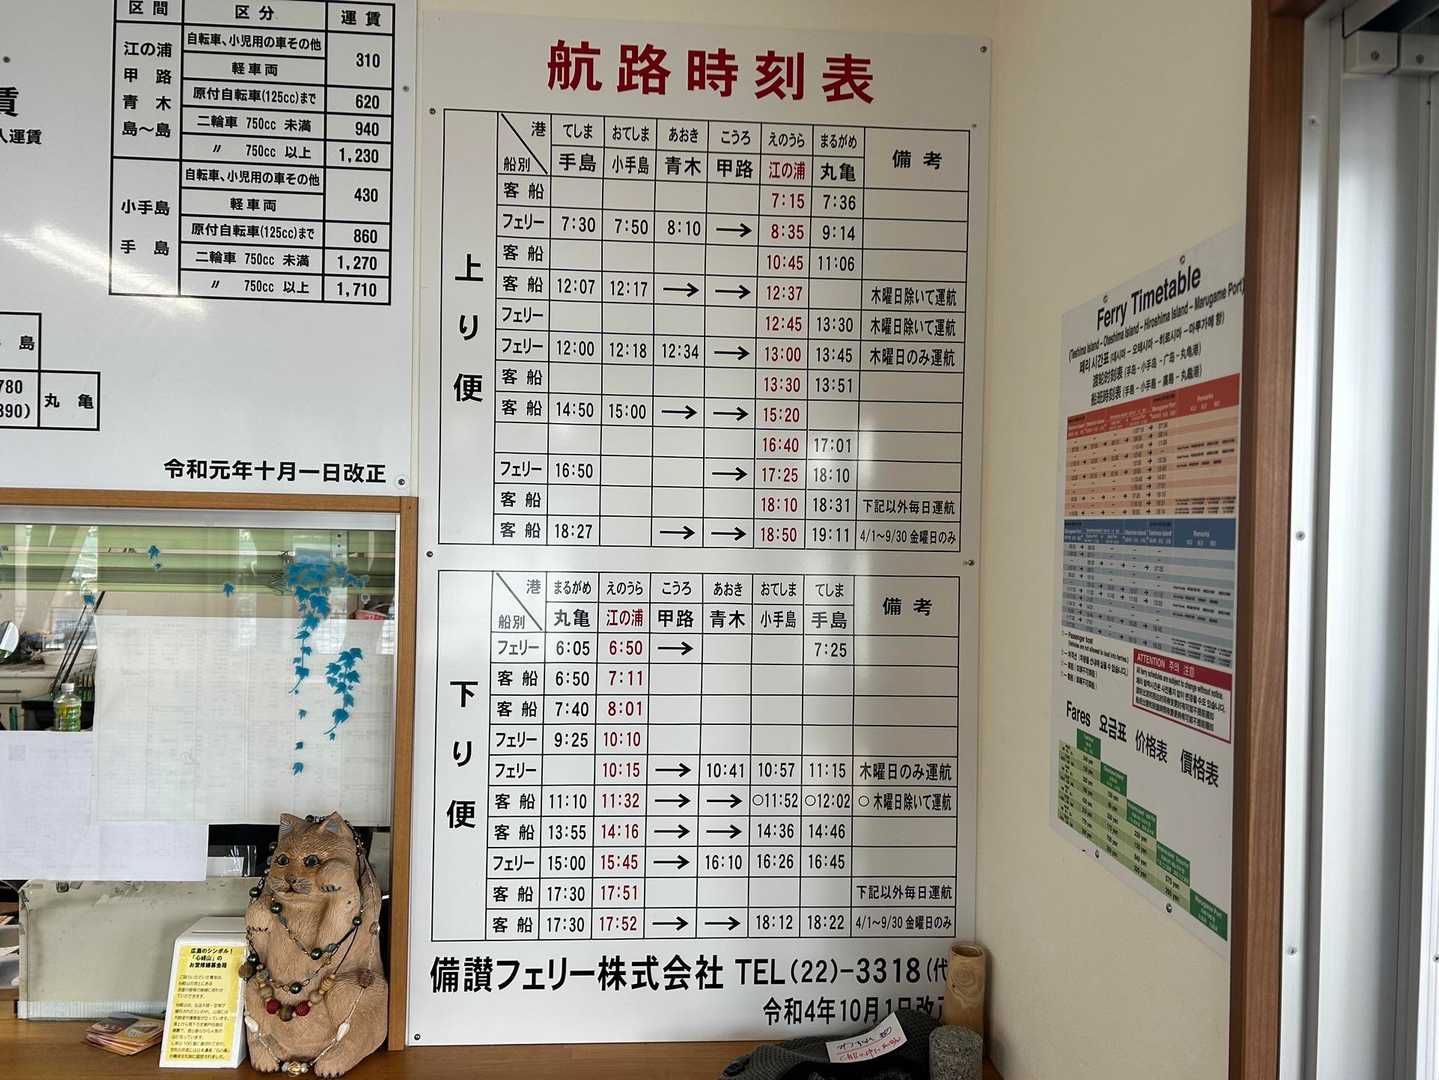 区間 区分 運賃
江の浦 甲路 青木 島～島
自転車、小児用の車その他 軽車両 310
原付自転車(125cc)まで 620
二輪車 750cc 未満 940
〃 750cc 以上 1,230
小手島 手島
自転車、小児用の車その他 軽車両 430
原付自転車(125cc)まで 860
二輪車 750cc 未満 1,270
〃 750cc 以上 1,710
賃
人運賃
島
780
890) 丸亀
令和元年十月一日改正
航路時刻表
上り便
港 てしま おてしま あおき こうろ えのうら まるがめ 備考
船別 手島 小手島 青木 甲路 江の浦 丸亀
客船 7:15 7:36
フェリー 7:30 7:50 8:10 → 8:35 9:14
客船 10:45 11:06
客船 12:07 12:17 → → 12:37 木曜日除いて運航
フェリー 12:45 13:30 木曜日除いて運航
フェリー 12:00 12:18 12:34 → 13:00 13:45 木曜日のみ運航
客船 13:30 13:51
客船 14:50 15:00 → → 15:20
16:40 17:01
フェリー 16:50 → 17:25 18:10
客船 18:10 18:31 下記以外毎日運航
客船 18:27 → → 18:50 19:11 4/1～9/30 金曜日のみ
下り便
港 まるがめ えのうら こうろ あおき おてしま てしま 備考
船別 丸亀 江の浦 甲路 青木 小手島 手島
フェリー 6:05 6:50 → 7:25
客船 6:50 7:11
客船 7:40 8:01
フェリー 9:25 10:10
フェリー 10:15 → 10:41 10:57 11:15 木曜日のみ運航
客船 11:10 11:32 → → ○11:52 ○12:02 ○木曜日除いて運航
客船 13:55 14:16 → → 14:36 14:46
フェリー 15:00 15:45 → 16:10 16:26 16:45
客船 17:30 17:51 下記以外毎日運航
客船 17:30 17:52 → → 18:12 18:22 4/1～9/30 金曜日のみ
備讃フェリー株式会社 TEL(22)-3318(代
令和4年10月1日改正
Ferry Timetable
(Teshima Island – Oteshima Island – Hiroshima Island – Marugame Port)
페리 시간표 (데시마 – 오테시마 – 히로시마 – 마루가메 항)
渡轮时刻表 (手岛 – 小手岛 – 广岛 – 丸龟港)
船班時刻表 (手島 – 小手島 – 廣島 – 丸龜港)
ATTENTION 주의 注意
All ferry schedules are subject to change without notice.
Fares 요금표 价格表 價格表
広島のシンボル！
「心経山」の